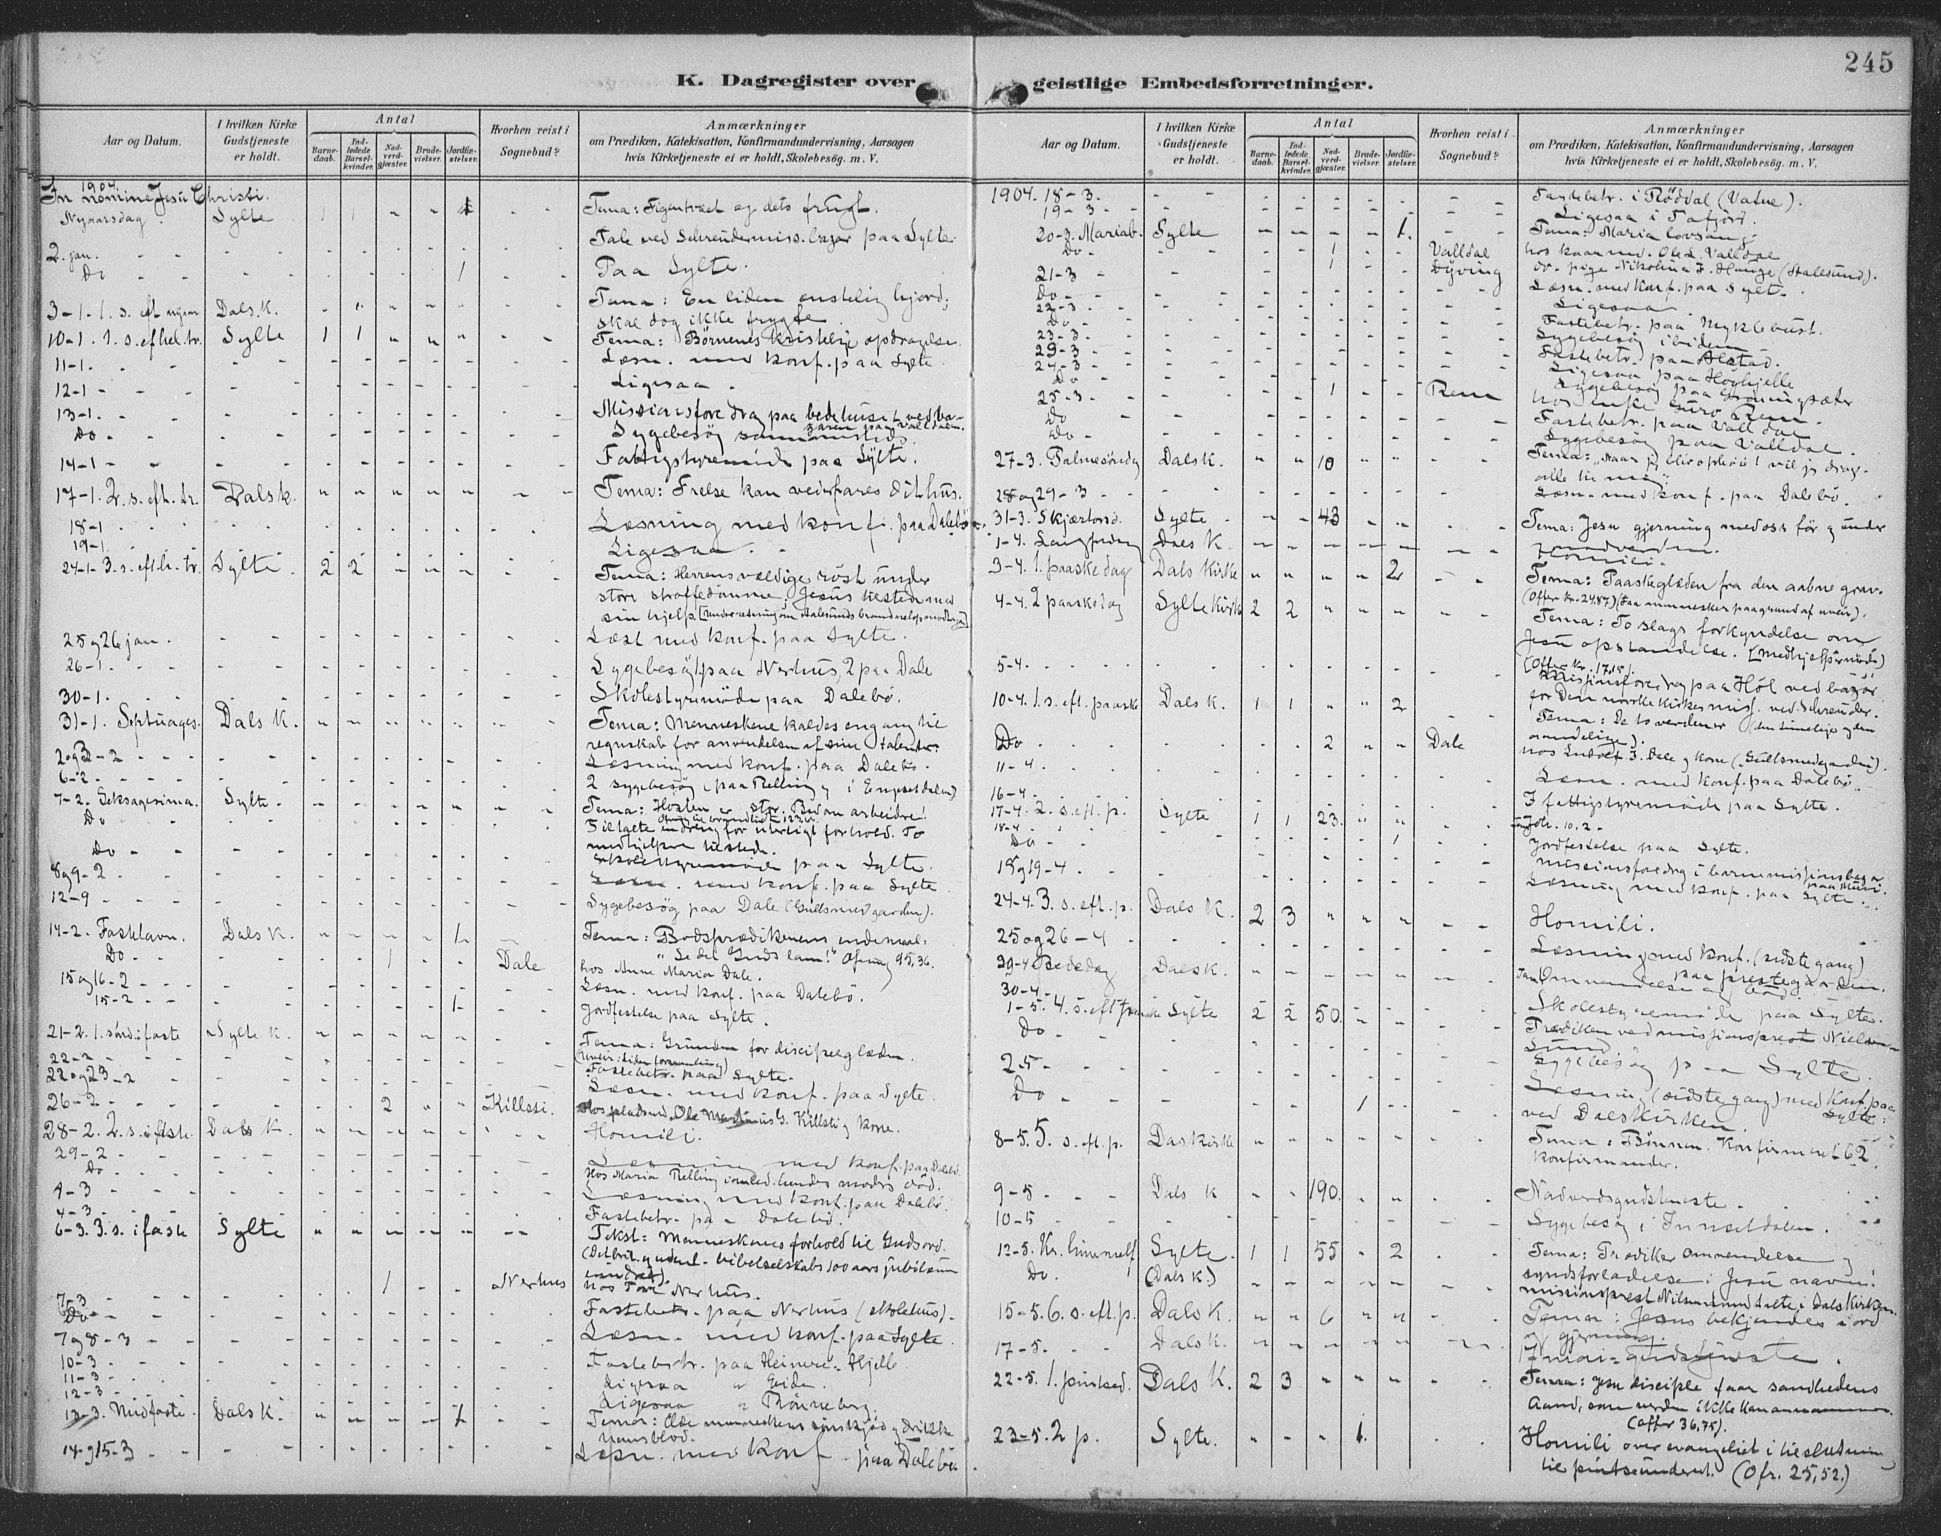 245
K. Dagregister over geistlige Embedsforretninger.
Aar og Datum.
I hvilken Kirke Gudstjeneste er holdt.
Antal
Barnedaab.
Indledede Barselkvinder.
Nadverdgjæster.
Brudevielser.
Jordfæstelser.
Hvorhen reist i Sognebud?
Anmærkninger
om Prædiken, Katekisation, Konfirmandundervisning, Aarsagen
hvis Kirketjeneste ei er holdt, Skolebesög. m. V.
1904.
In nomine Jesu Christi.
Nyaarsdag. Sylte 1 1 Tema: Figentræet og dets frugt.
2. jan. Tale ved Schreudermiss. bazar paa Sylte.
Do 1 Paa Sylte.
3-1. 1. s. eft. nyaar Dals K. Tema: En liden hjord;
skal dog ikke frygte.
10-1. 1. s. ef. hel. tr. Sylte 1 1 Tema: Børnenes kristelige opdragelse.
11-1. Læsn. med konf. paa Sylte.
12-1 Ligesaa.
13-1. Missionsforedrag paa bedehuset ved ba-
zaren paa Valldalen.
Do Sygebesøg sammesteds.
14-1 Fattigstyremöde paa Sylte.
17-1. 2. s. eft. h. tr. Dals k. Tema: Frelse kan vederfares dit hus.
18-1 Læsning med konf. paa Dalebö.
19-1. Ligesaa.
24-1. 3. s. eft. h. tr. Sylte 2 2 Tema: Herrens vældige röst under
store straffedomme; Jesus tilstede med
sin hjelp.
25 og 26 jan. Læst med konf. paa Sylte.
26-1. Sygebesøg paa Nerhus, 2 paa Dale
30-1. Skolestyremöde paa Dalebö.
31-1. Septuages. Dals K. Tema: Menneskene kaldes engang til
regnskab for anvendelsen af sine talenter.
2 og 3-2 Læsning med konf. paa Dalebö.
6-2. 2 sygebesög (paa Relling og i Engesetdalen)
7-2. Seksagesima. Sylte.
Do
Do Skolestyremöde paa Sylte.
8 og 9-2 Læsn. med konf. paa Sylte.
12-9 Sygebesøg paa Dale (Gullsmedgarden).
14-2. Fastelavn. Dals K. 1. Tema: Bodsprædikenens endemaal:
"Se det Guds lam!"
Do 1 Dale hos Anne Maria Dale.
15 og 16-2 Læsn. med konf. paa Dalebö.
15-2 1. Jordfestelse paa Sylte.
21-2. 1. sönd. i faste Sylte K. Tema: Grunden for discipelglæden.
22-2 Fastebetr. paa Sylte.
22 og 23-2 Læsn. med konf. paa Sylte.
26-2 2 Killsti. Hos pladsmd. Ole Martinus G. Killsti og kone.
28-2. 2. s. i faste. Dals K. Homili.
29-2 Læsning med konf. paa Dalebö.
Do Hos Maria Relling
4-3 Læsning med konf. paa Dalebö.
4-3 Fastebetr. paa Dalebö.
6-3. 3. s. i faste Sylte Tekst: Menneskenes forhold til Guds ord.
(Det brit. og udenl. bibelselskabs 100 aars jubilæum
7-3 1 Nerhus hos Tore Nerhus.
Do Fastebetr. paa Nerhus (skolehus).
7 og 8-3 Læsn. med konf. paa Sylte.
10-3 Fastebetr. paa Heimre-Hjelle.
11-3 Ligesaa " Eide.
12-3 Ligesaa
13-3. Midfaste Dals K. 1
14 og 15-3 Læsn. med konf. paa Dalebö
1904. 18-3. Fastebetr. i Röddal (Vatne).
19-3 Ligesaa i Tafjord.
20-3. Mariab. Sylte 1. Tema: Maria lovsang.
Do 1 Valldal
21-3 1 Dyving
Do Læsn. med konf. paa Sylte.
22-3 Ligesaa
Do Fastebetr. paa Myklebust.
23-3 Sygebesög ibidem
23-3 Fastebetr. paa Alstad.
24-3 Ligesaa paa Hovhjelle
Do Sygebesög paa Grönningsæter
25-3 1 Rem hos enke Guro Rem.
Do Fastebetr. paa Valldal
Do Sygebesög paa Valldal.
27-3. Palmesöndag Dals K. 10 Tema: "Naar jeg blir ophöiet vil jeg drage
alle til mig".
28 og 29-3 Læsn. med konf. paa Dalebö.
31-3. Skjærtorsd. Sylte 43 Tema: Jesu gjerning med oss för og under
nadverden.
1-4. Langfredag Dals K. Homili.
3-4. 1. paaskedag Dals Kirke 2 Tema: Paaskeglæden fra den aabne grav.
4-4. 2 paaskedag Sylte Kirke 2 2 Tema: To slags forkyndelse om
Jesu opstandelse.
(Offer Kr. 17,15).
5-4. Missionsforedrag paa Höl ved bazar
for Den norske kirkes miss. ved Schreuder.
10-4. 1. s. eft. paaske Dals K. 1 1 2 Tema: De to verdener
Do 2 Dale
11-4 Læsn. med konf. paa Dalebö.
16-4. I fattigstyremöde paa Sylte.
17-4. 2. s. eft. p. Sylte 1 1 23. Joh. 10.2-
18-4 1 Jordfestelse paa Sylte.
Do missionsforedrag i barnemissionsbazar
18 og 19-4 Læsning med konf. paa Sylte.
24-4. 3. s. eft. p. Dals K. 2 3 Homili.
25 og 26-4 Læsning med konf. (sidste gang)
paa prestegarden.
29-4 Bededag Dals K.
30-4. Skolestyremöde paa Sylte.
1-5. 4. s. eft. paaske Sylte 2 2 50. Prædiken ved missionsprest Nielsen-
Lund
Do Sygebesög paa Sylte.
2.5- Læsning (sidste gang) med konf. paa Sylte.
Do 1 ved Dalskirken.
8-5. 5. s. eft. p. Dalskirke Tema: Bönnen. Konfirmeret 62
konfirmander.
9-5 Dals K 190. Nadverdsgudstjeneste.
10-5 Sygebesög i Innsetdalen.
12-5. Kr. himmelf. Sylte. 1 1 55 2 Tema: Prædike omvendelse og
syndsforladelse i Jesu navn!
Do. (Dals K.) missionsprest Nilsen-Lund talte i Dalskirken.
15-5. 6. s. eft. p. Dals K. 6 Tema: Jesus bekjendes i ord
og gjerning.
17-5. Dals K. 17 mai-gudstjeneste.
22-5. 1. pintsed. Dals K. 2 3 Tema: Jesu disciple faar sandhedens
Aand, som verden ikke kan annamme.
(Offer 36,75).
23-5. 2 p. Sylte. 1. Homili over evangeliet i tilslutning
til pintseunderet. (Ofr. 25,52.)